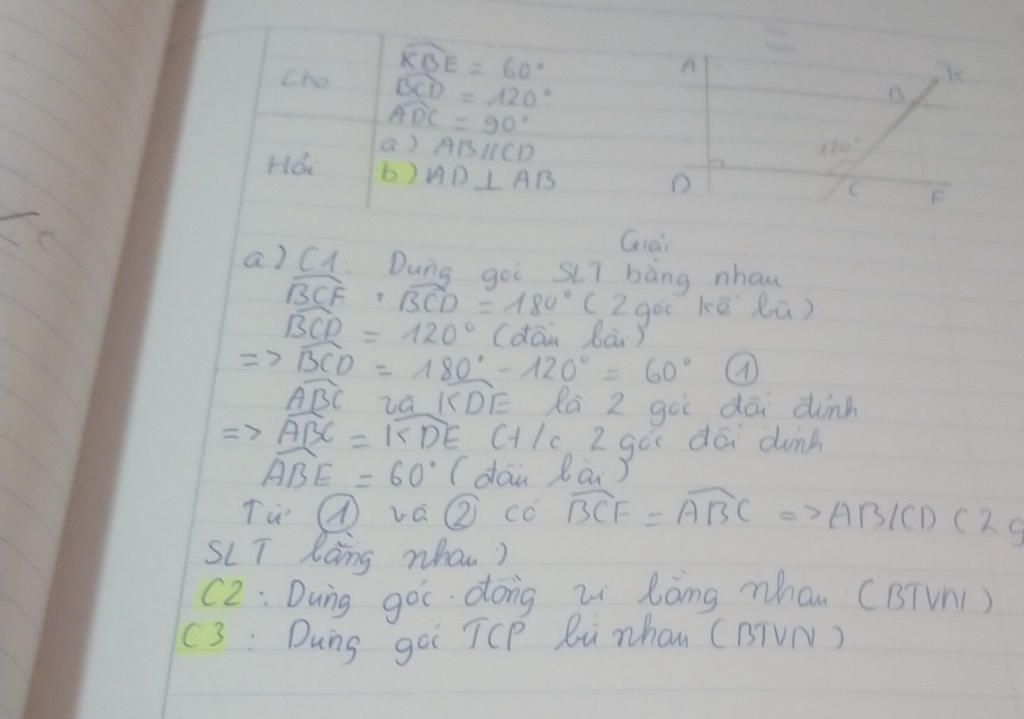 Cho
KBE = 60°
BCD = 120°
ADC = 90°
Hỏi
a) AB//CD
b) AD ⊥ AB
A
B
K
120°
D
C
F
Giải
a) C1: Dùng góc SLT bằng nhau
BCF + BCD = 180° (2 góc kề bù)
BCD = 120° (đầu bài)
=> BCD = 180° - 120° = 60° ①
ABC và KDE là 2 góc đối đỉnh
=> ABC = KDE (t/c 2 góc đối đỉnh
ABE = 60° (đầu bài)
Từ ① và ② có BCF = ABC => AB//CD (2 g
SLT bằng nhau)
C2: Dùng góc đồng vị bằng nhau (BTVN)
C3: Dùng góc TCP bù nhau (BTVN)